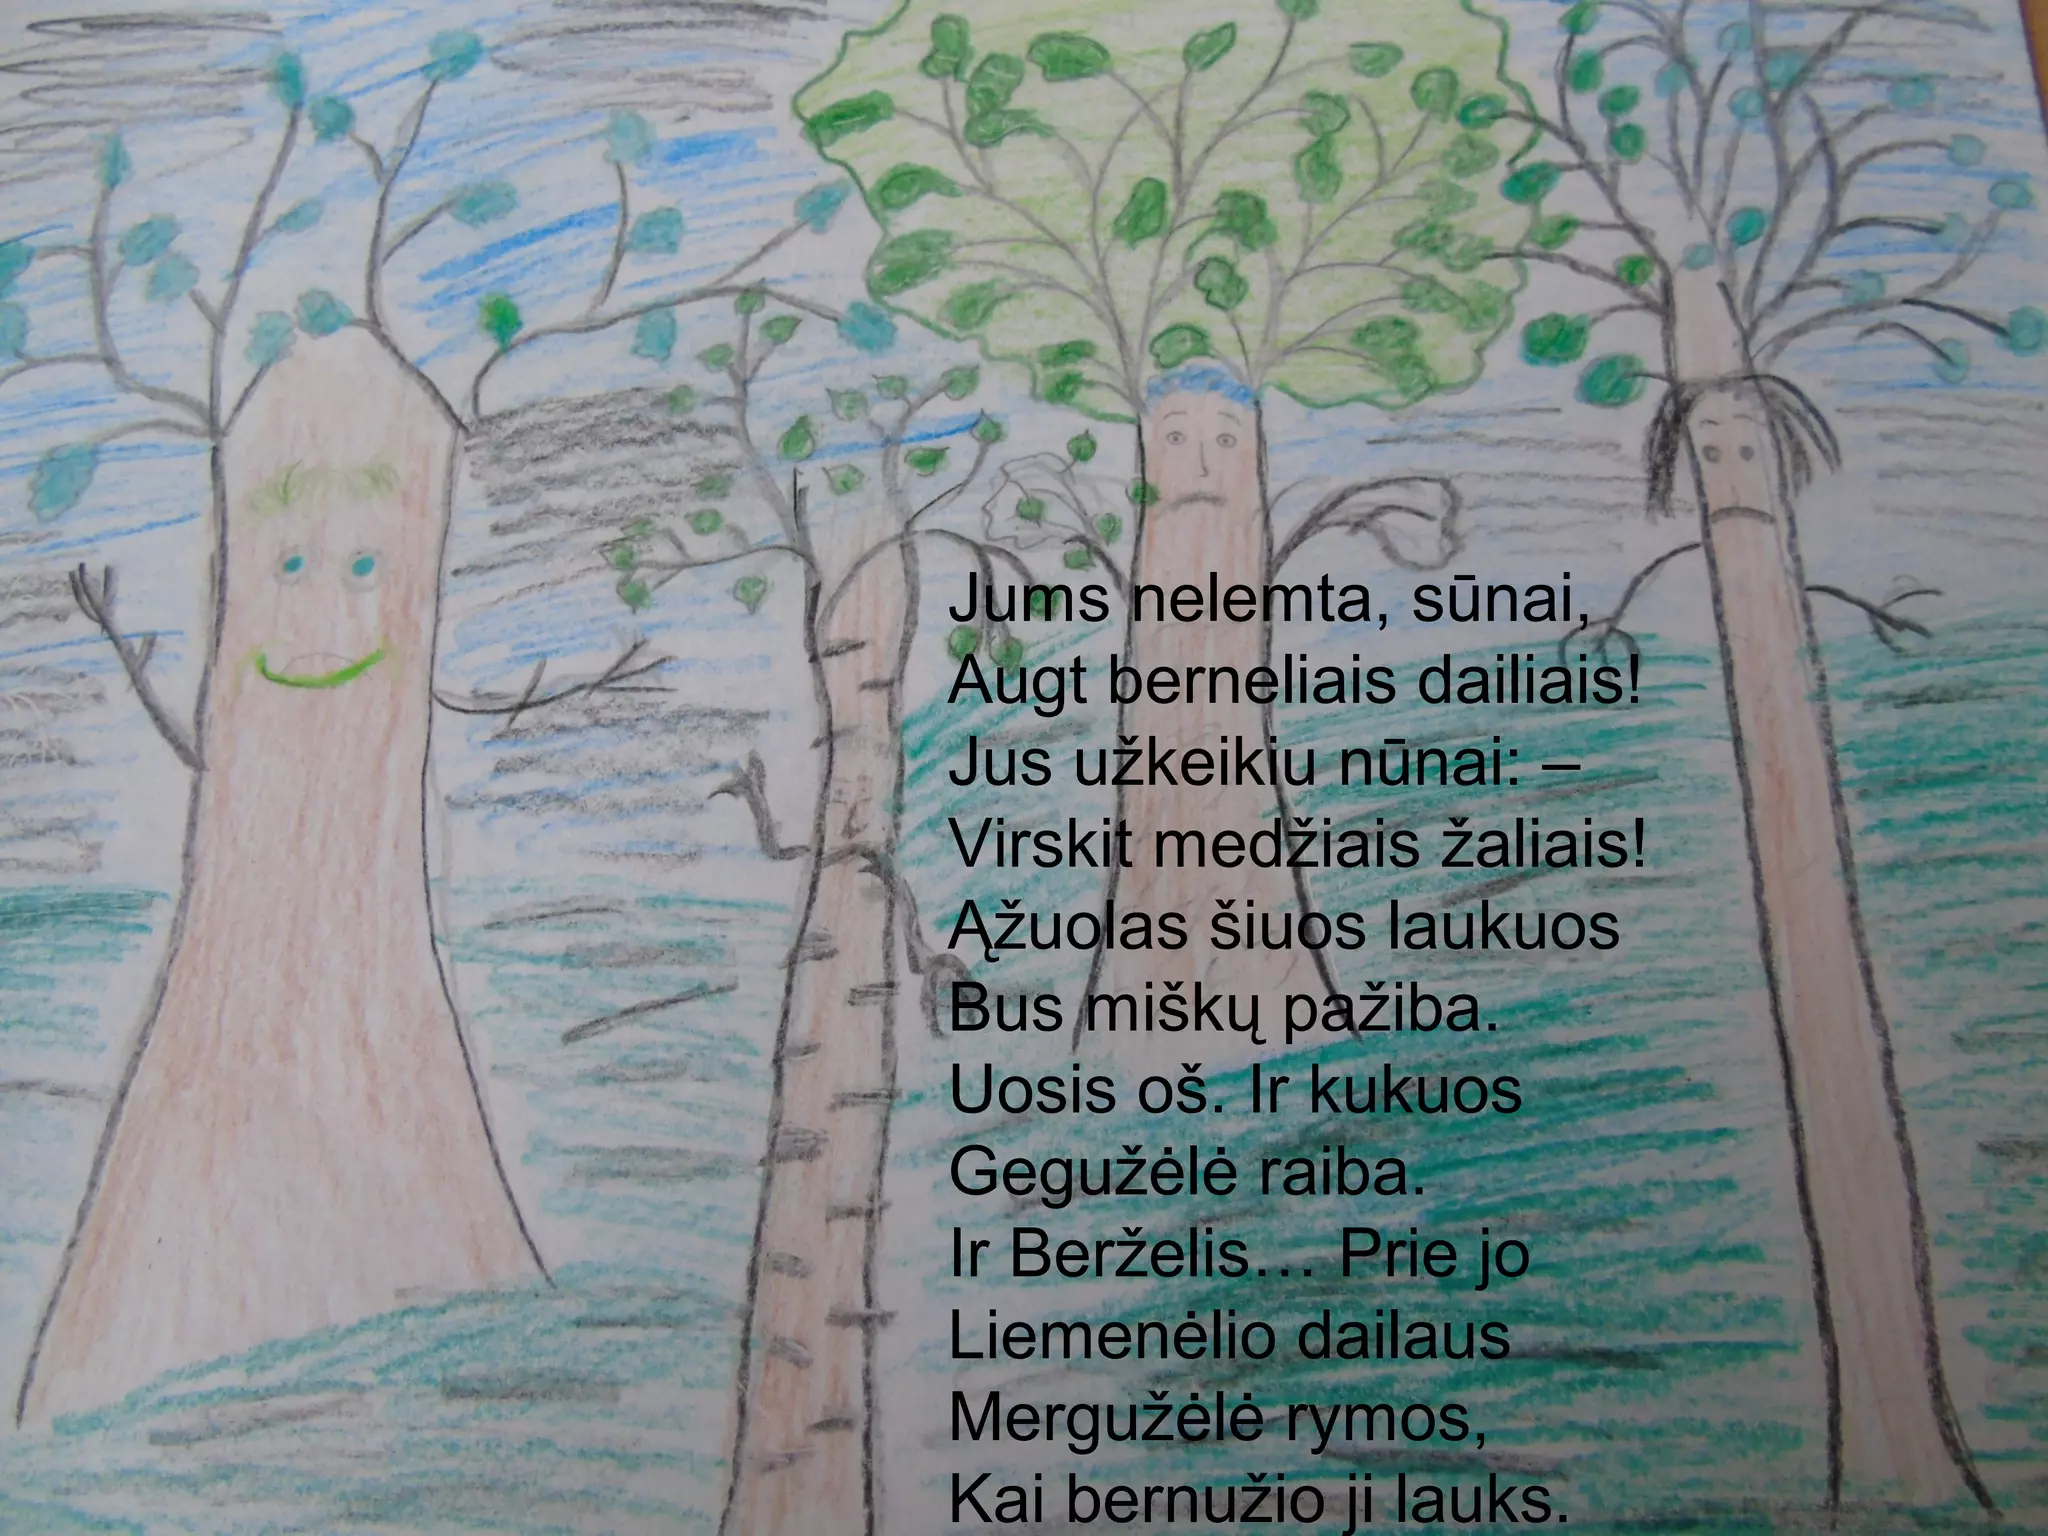 Jums nelemta, sūnai,
Augt berneliais dailiais!
Jus užkeikiu nūnai: –
Virskit medžiais žaliais!
Ąžuolas šiuos laukuos
Bus miškų pažiba.
Uosis oš. Ir kukuos
Gegužėlė raiba.
Ir Berželis… Prie jo
Liemenėlio dailaus
Mergužėlė rymos,
Kai bernužio ji lauks.